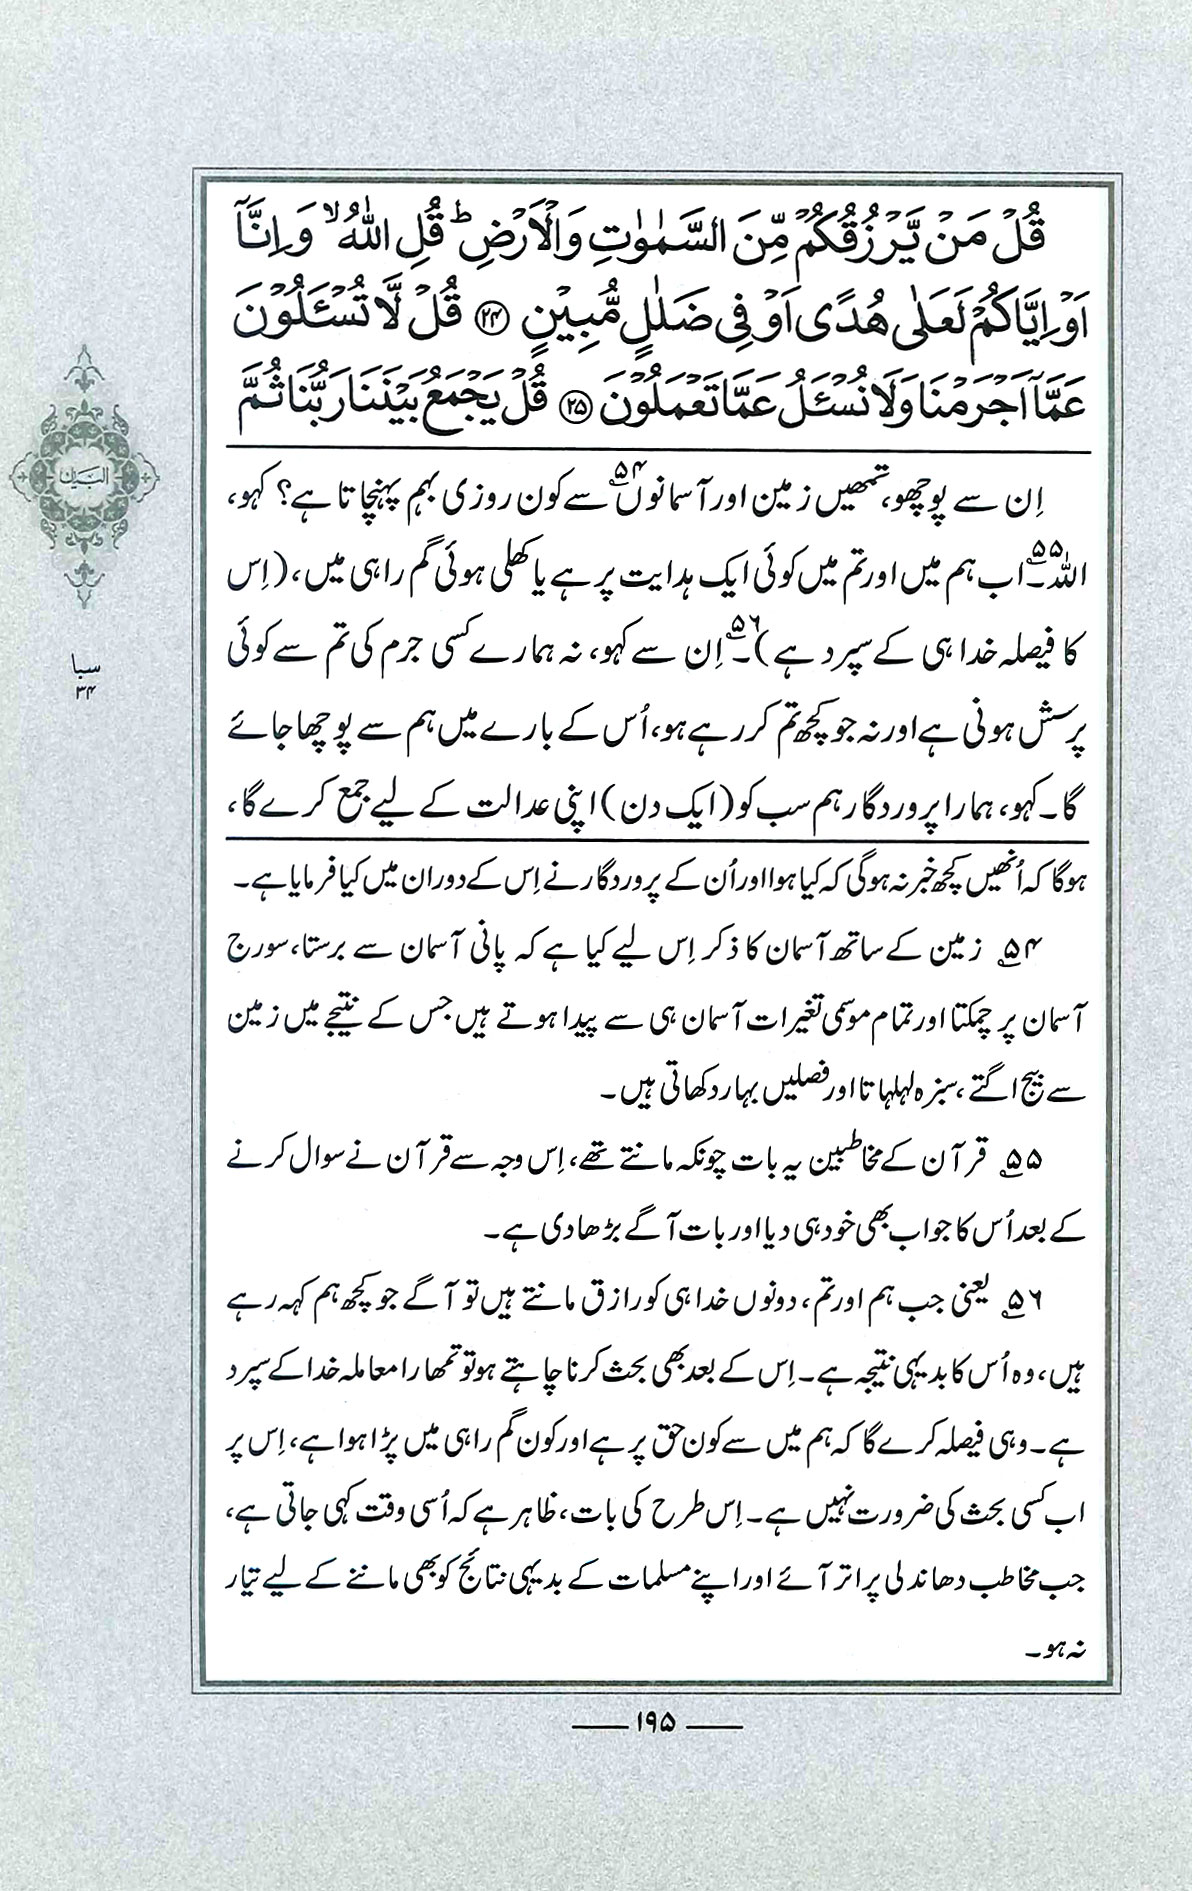 قُلْ مَنْ يَّرْزُقُكُمْ مِّنَ السَّمٰوٰتِ وَالْاَرْضِ ؕ قُلِ اللّٰهُ ۙ وَاِنَّآ
اَوْ اِيَّاكُمْ لَعَلٰى هُدًى اَوْ فِىْ ضَلٰلٍ مُّبِيْنٍ ﴿۲۴﴾ قُلْ لَّا تُسْـَٔلُوْنَ
عَمَّآ اَجْرَمْنَا وَلَا نُسْـَٔلُ عَمَّا تَعْمَلُوْنَ ﴿۲۵﴾ قُلْ يَجْمَعُ بَيْنَنَا رَبُّنَا ثُمَّ
اِن سے پوچھو، تمھیں زمین اور آسمانوں۵۴ سے کون روزی بہم پہنچاتا ہے؟ کہو،
اللہ۵۵۔ اب ہم میں اور تم میں کوئی ایک ہدایت پر ہے یا کھلی ہوئی گم راہی میں، (اِس
کا فیصلہ خدا ہی کے سپرد ہے)۔۵۶ اِن سے کہو، نہ ہمارے کسی جرم کی تم سے کوئی
پرسش ہونی ہے اور نہ جو کچھ تم کر رہے ہو، اُس کے بارے میں ہم سے پوچھا جائے
گا۔ کہو، ہمارا پروردگار ہم سب کو (ایک دن) اپنی عدالت کے لیے جمع کرے گا،
ہوگا کہ اُنھیں کچھ خبر نہ ہوگی کہ کیا ہوا اور اُن کے پروردگار نے اِس کے دوران میں کیا فرمایا ہے۔
۵۴ زمین کے ساتھ آسمان کا ذکر اِس لیے کیا ہے کہ پانی آسمان سے برستا، سورج
آسمان پر چمکتا اور تمام موسمی تغیرات آسمان ہی سے پیدا ہوتے ہیں جس کے نتیجے میں زمین
سے بیج اگتے، سبزہ لہلہاتا اور فصلیں بہار دکھاتی ہیں۔
۵۵ قرآن کے مخاطبین یہ بات چونکہ مانتے تھے، اِس وجہ سے قرآن نے سوال کرنے
کے بعد اُس کا جواب بھی خود ہی دیا اور بات آگے بڑھا دی ہے۔
۵۶ یعنی جب ہم اور تم، دونوں خدا ہی کو رازق مانتے ہیں تو آگے جو کچھ ہم کہہ رہے
ہیں، وہ اُس کا بدیہی نتیجہ ہے۔ اِس کے بعد بھی بحث کرنا چاہتے ہو تو تمھارا معاملہ خدا کے سپرد
ہے۔ وہی فیصلہ کرے گا کہ ہم میں سے کون حق پر ہے اور کون گم راہی میں پڑا ہوا ہے، اِس پر
اب کسی بحث کی ضرورت نہیں ہے۔ اِس طرح کی بات، ظاہر ہے کہ اُسی وقت کہی جاتی ہے،
جب مخاطب دھاندلی پر اتر آئے اور اپنے مسلمات کے بدیہی نتائج کو بھی ماننے کے لیے تیار
نہ ہو۔
البیان
سبا
۳۴
۱۹۵